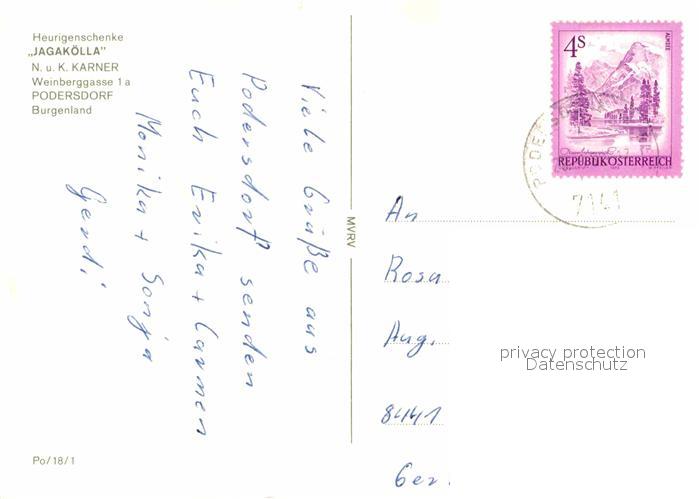 Heurigenschenke
„JAGAKÖLLA"
N. u. K. KARNER
Weinberggasse 1a
PODERSDORF
Burgenland
Viele Grüße aus
Podersdorf senden
Euch Erika + Carmen
Monika + Sonja
Gerdi
Po/18/1
MVRV
4S
ALMSEE
REPUBLIK ÖSTERREICH
PODE
7141
An
Rosa
Aug.
8441
Ger.
privacy protection
Datenschutz